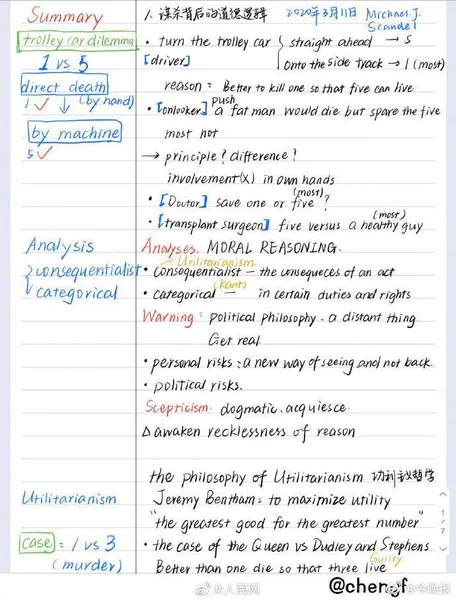 Summary
1. 谋杀背后的道德逻辑 2020年3月11日 Michael J. Scandel
trolley car dilemma
• turn the trolley car { straight ahead → 5
onto the side track → 1 (most)
1 vs 5
[driver]
direct death
reason: Better to kill one so that five can live
1 ✓ ↓ (by hand)
• [onlooker] push a fat man would die but spare the five
by machine
most not
5 ✓
→ principle? difference?
involvement(x) in own hands
• [Doutor] save one or five? (most)
• [transplant surgeon] five versus a healthy guy (most)
Analysis
Analyses. MORAL REASONING.
Utilitarianism
{ consequentialist
categorical
• consequentialist – the consequeces of an act
• categorical (Kants) – in certain duties and rights
Warning: political philosophy. a distant thing
Get real
• personal risks: a new way of seeing and not back.
• political risks.
Scepticism. dogmatic. acquiesce.
△ awaken recklessness of reason
the philosophy of Utilitarianism 功利主义哲学
Utilitarianism
Jeremy Bentham: to maximize utility
"the greatest good for the greatest number"
case = 1 vs 3
(murder)
• the case of the Queen vs Dudley and Stephens
Better than one die so that three live Guilty
1/7
@人民网
@chengf